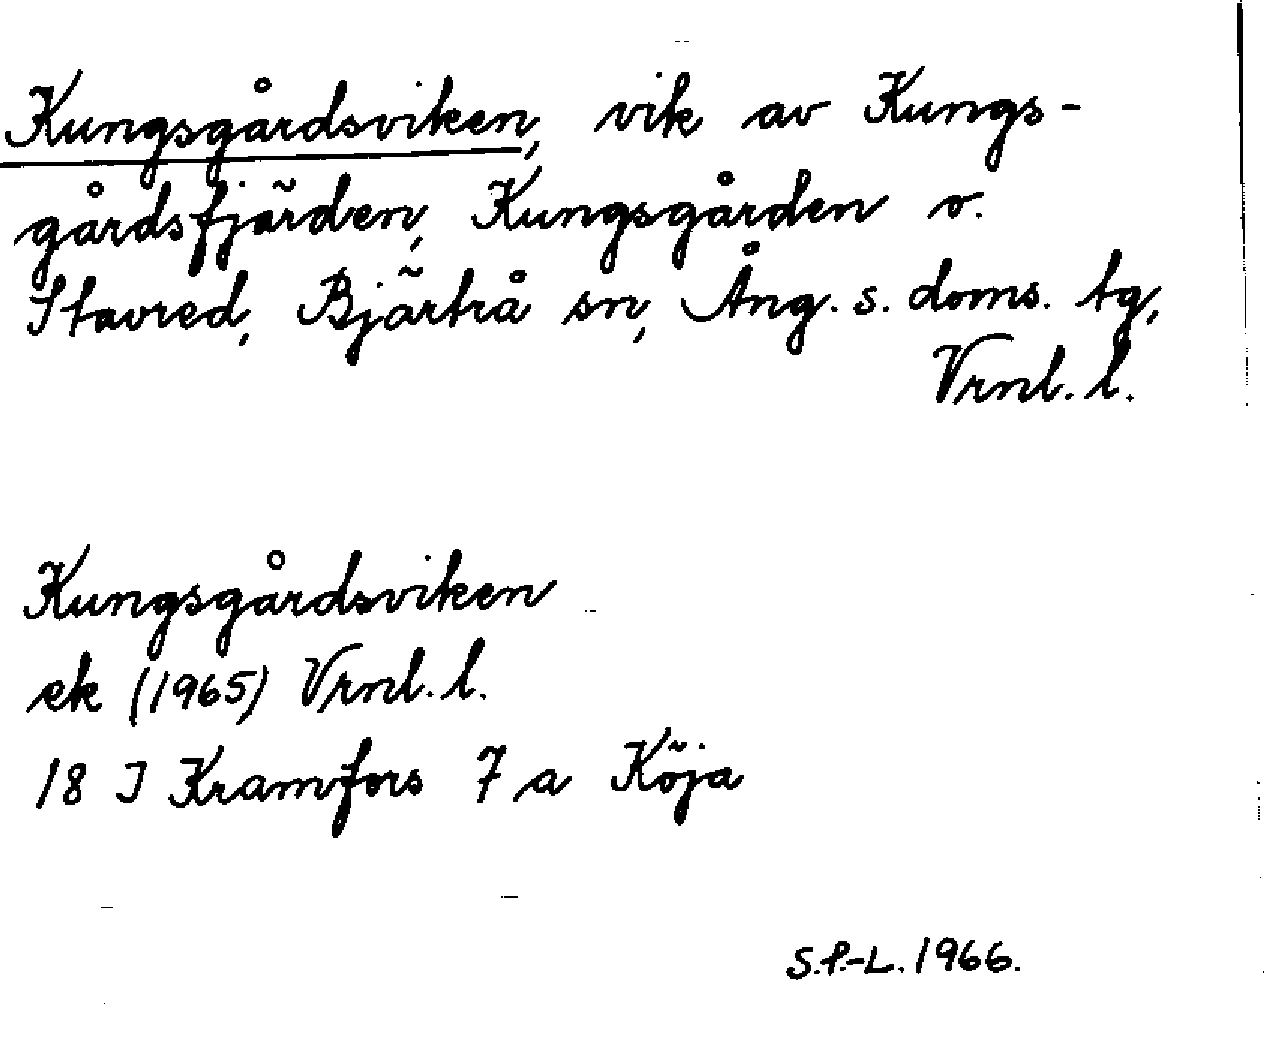 Kungsgårdsviken, vik av Kungs-
gårdsfjärden, Kungsgården o.
Stavred, Bjärtrå sn, Ång. s. doms. tg,
Vrnl. l.
Kungsgårdsviken
ek (1965) Vrnl. l.
18 I Kramfors 7 a Köja
S.P.-L. 1966.